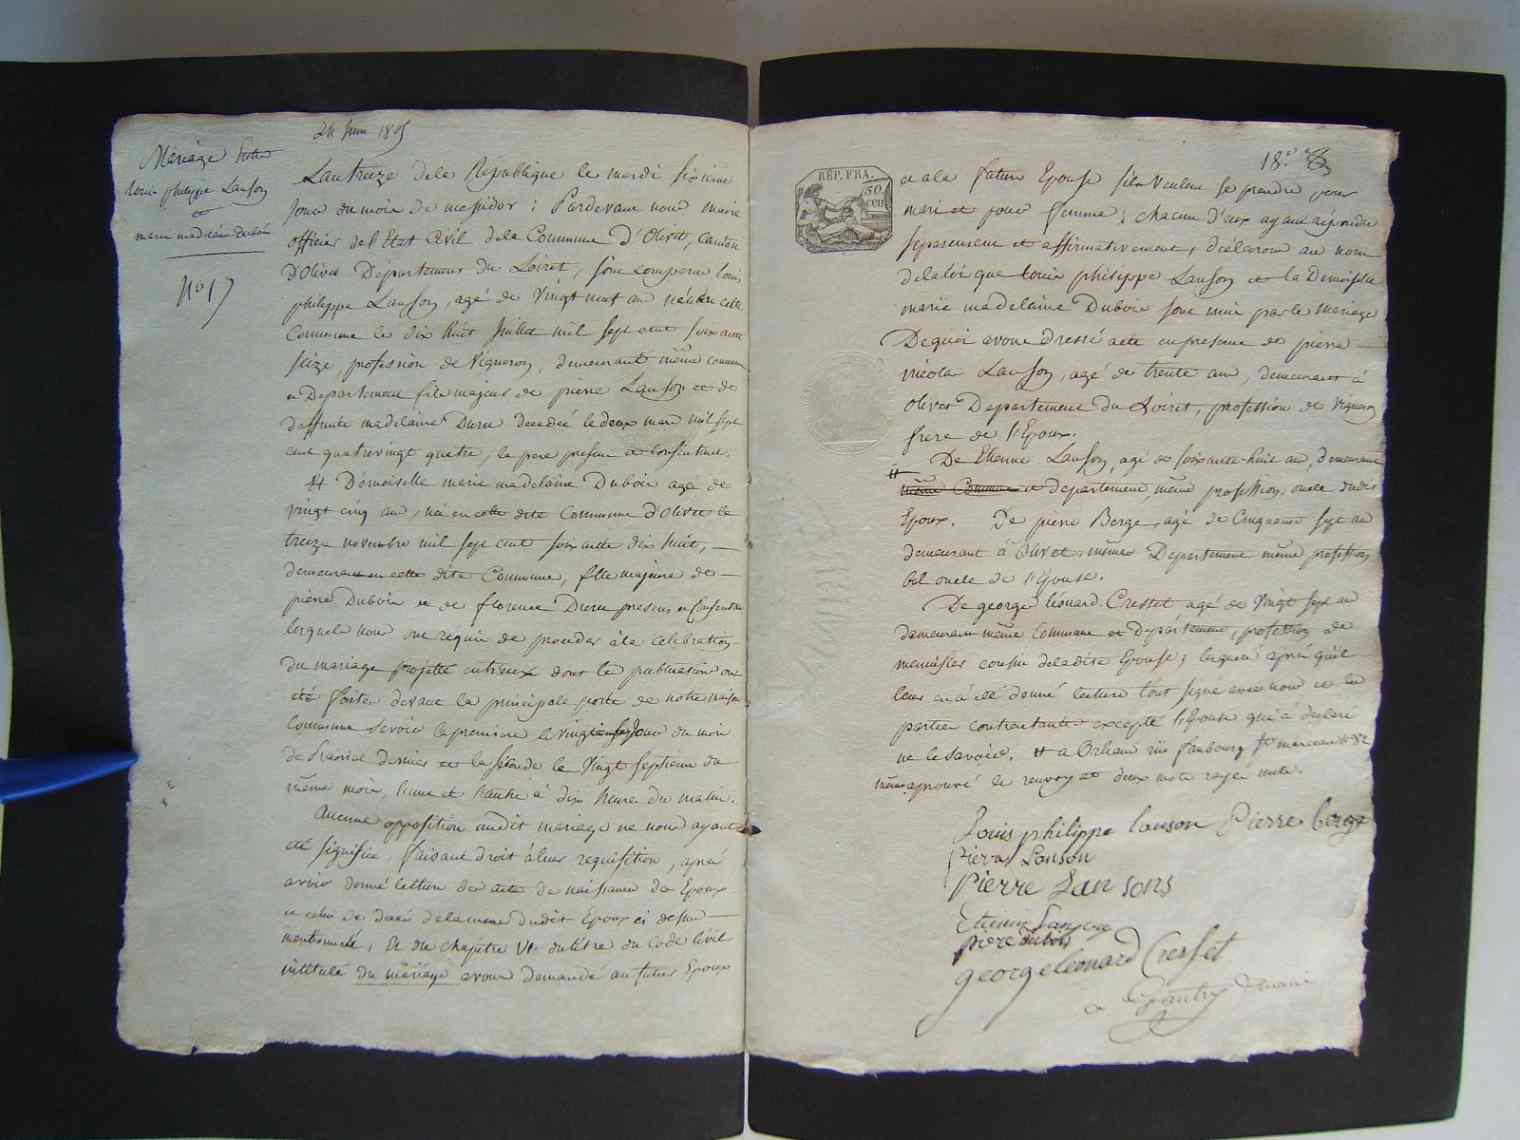 24 Juin 1805
Mariage Entre
Louis philippe Lanson
et
marie madelaine Dubois
N.o 17
L'an treize de la République le mardi sixieme
jour du mois de messidor ; Pardevant nous maire
officier de l'Etat Civil de la Commune d'Olivet, Canton
D'Olivet Département du Loiret, sont comparus louis
philippe Lanson, agé de Vingt neuf an né en cette
Commune le dix huit Juillet mil sept cent soixante
seize, profession de Vigneron, demeurant même commune
et Département fils majeur de pierre Lanson et de
deffunte madelaine Duru decedée le deux mars mil sept
cent quatrevingt quatre, le pere present et consentent.
Et Démoiselle marie madelaine Dubois agé de
vingt cinq an, née en cette dite Commune d'Olivet le
treize novembre mil sept cent soixante dix huit,
demeurant en cette dite Commune, fille majeure de
pierre Dubois et de florence Dreux presens et Consentens
lesquels nous ont requis de proceder à la célébration
du mariage projetté entreux dont les publications ont
été faites devant la principale porte de notre maison
Commune savoir la premiere le vingtieme jour du mois
de Prairial dernier et la séconde le Vingt septieme du
même mois, l'une et l'autre à dix heures du matin.
Aucune opposition audit mariage ne nous ayant
été signifiée, faisant droit à leur requisition, après
avoir donné lecture des actes de naissance des Epoux
et celui de décès de la mere dudit Epoux ci dessus
mentionnés, Et du chapitre VI. du titre du Code Civil
intitulé du mariage avons demandé au futur Epoux
18.e
RÉP. FRA.
50
et a la future Epouse s'ils Veulent se prendre pour
mari et pour femme ; chacun d'eux ayant répondu
séparement et affirmativement ; déclarons au nom
de la loi que Louis philippe Lanson et la Demoiselle
marie madelaine Dubois sont unis par le mariage
De quoi avons dressé acte en presence de pierre
nicolas Lanson, agé de trente ans, demeurant à
Olivet Département du Loiret, profession de Vigneron
frere de l'Epoux.
De Etienne Lanson, agé de soixante-huit ans, demeurant
# même Commune et département même profession, oncle dudit
Epoux. De pierre Berge, agé de Cinquante sept ans
demeurant à Olivet même Département même profession
bel oncle de l'Epouse.
De george léonard Cresset agé de Vingt sept an
demeurant même Commune et Département, profession de
menuisier cousin de ladite Epouse ; lesquels après qu'il
leur en a été donné lecture l'ont signé avec nous et les
parties contractantes excepté l'Epouse qui a déclaré
ne le savoir. # a Orléans rue faubourg St marceau N° 82
même aprouvé le renvoy et deux mots rayés nuls.
Louis philippe lanson Pierre berge
Pierre Lanson
Pierre Lan sons
Etienne Lanson
piere dubois
george leonard Cresset